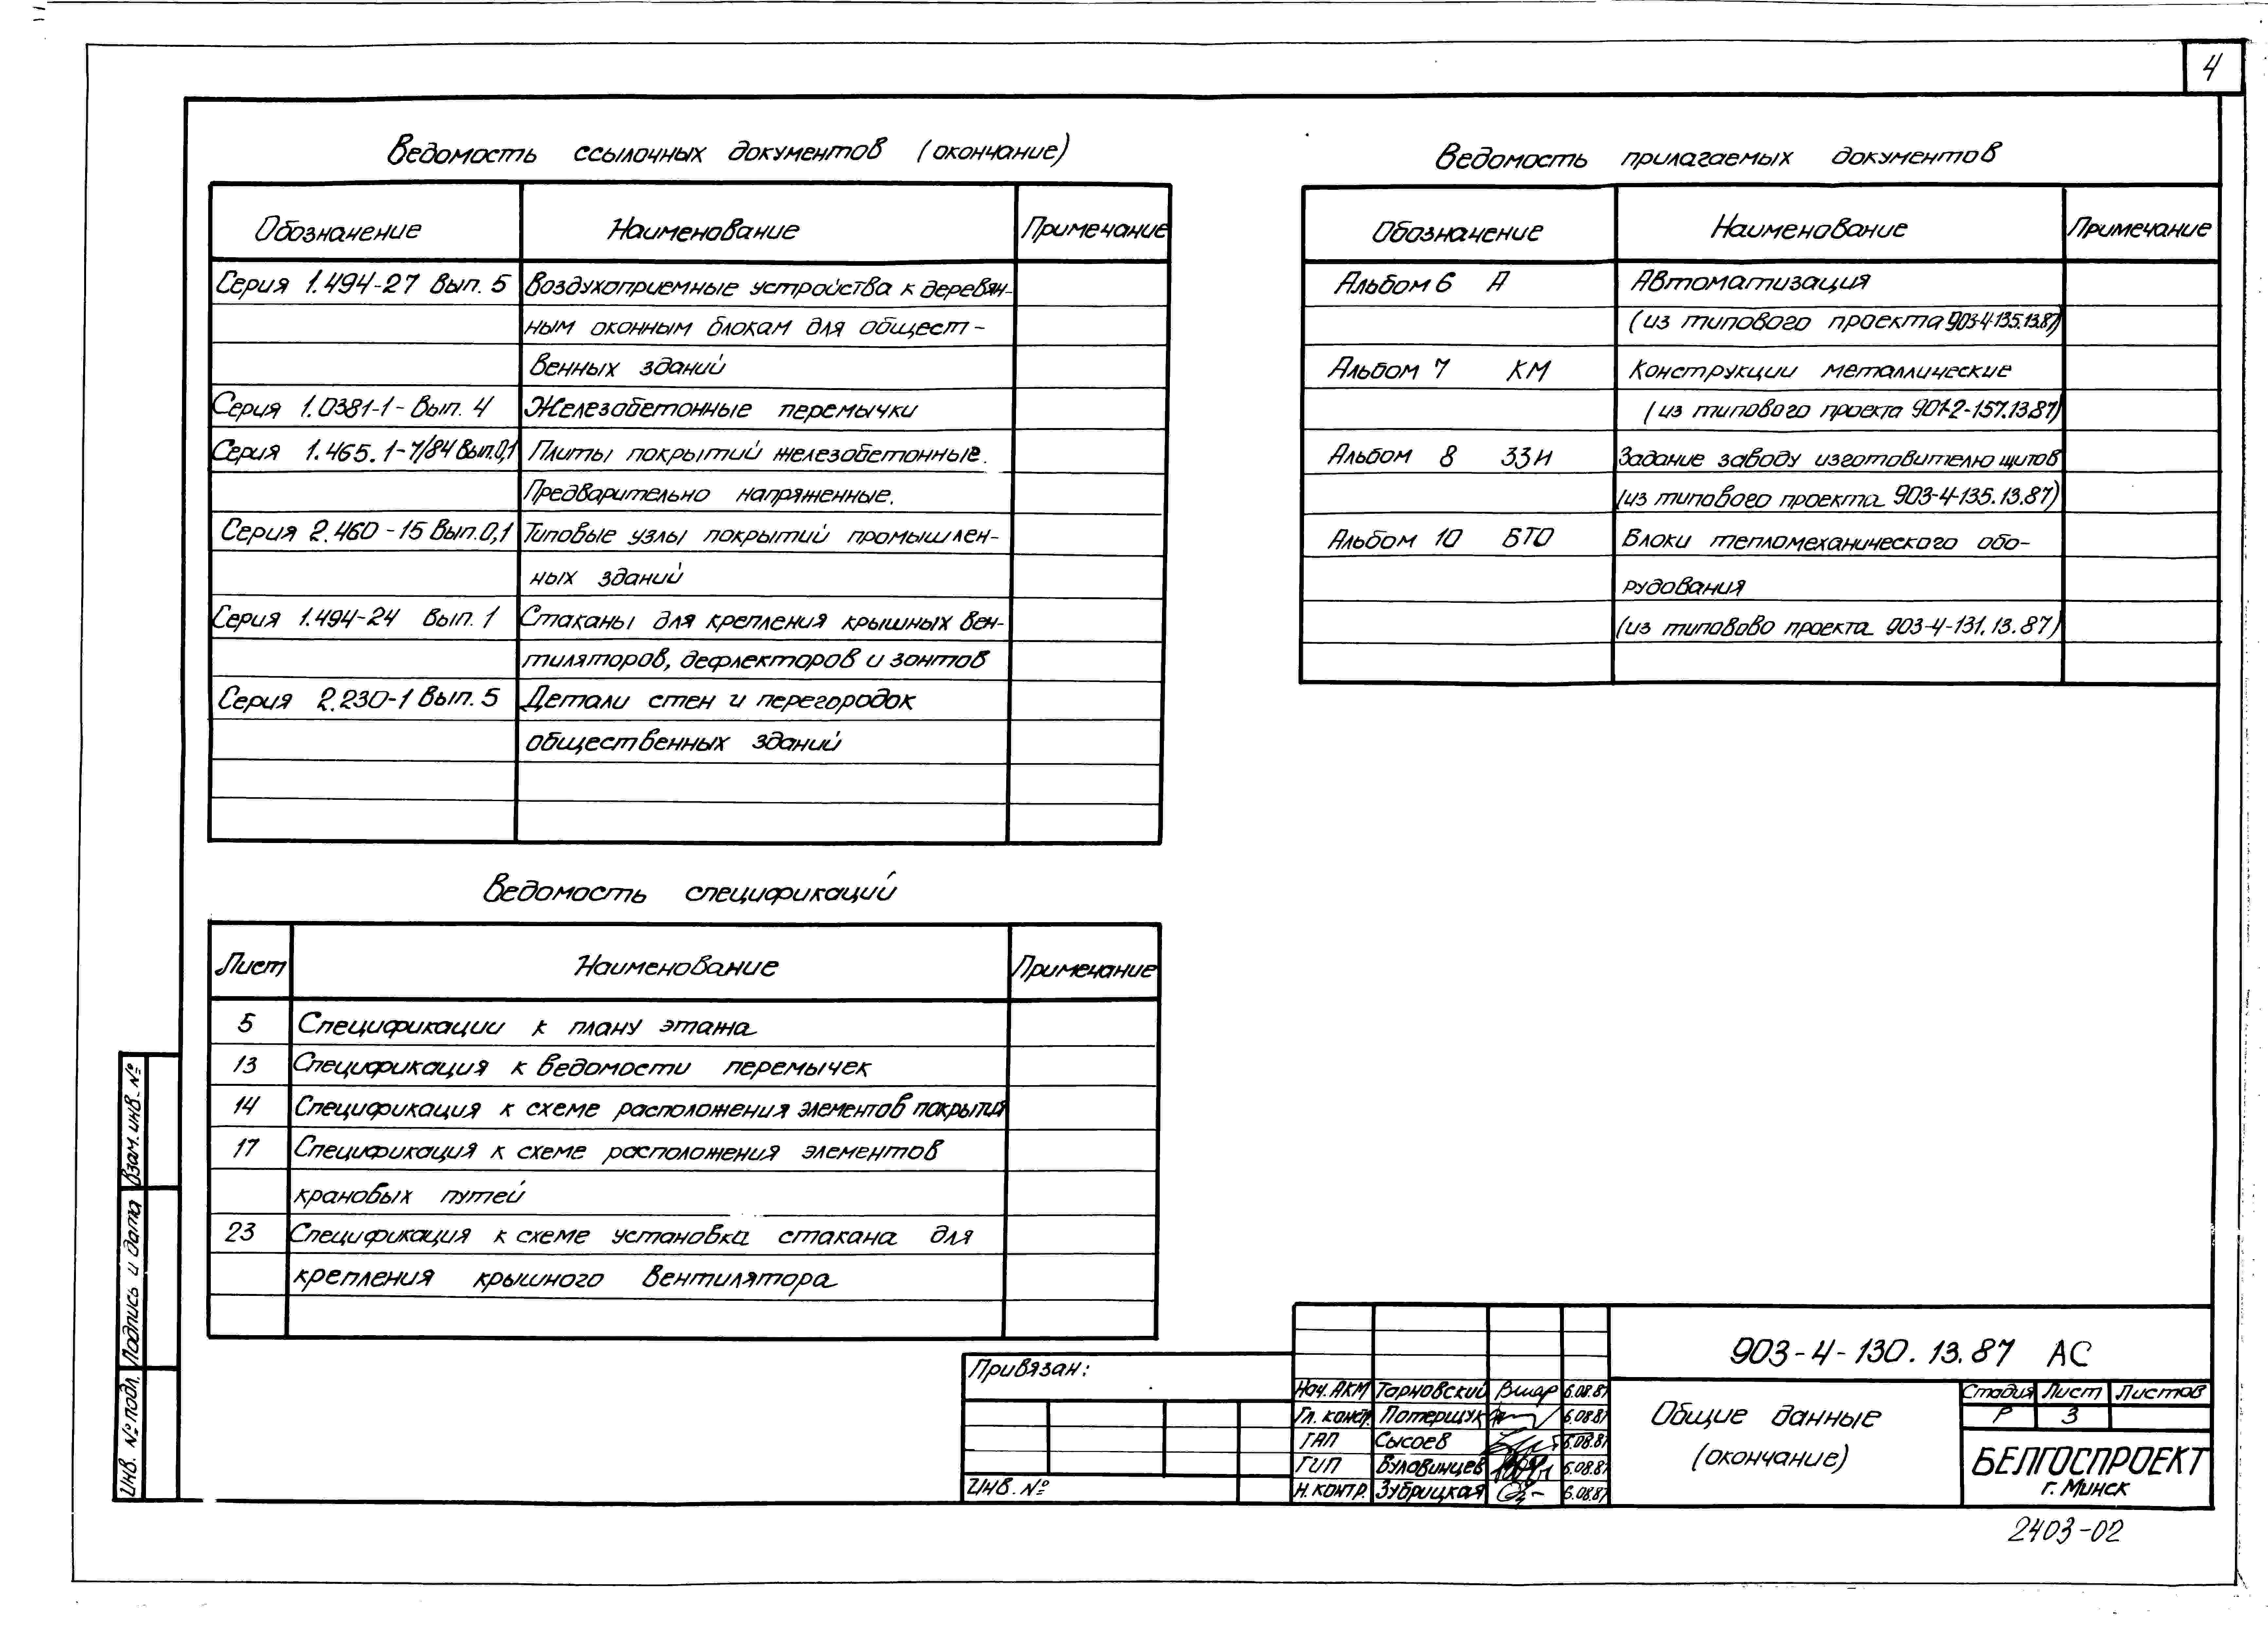 4
Ведомость ссылочных документов (окончание)
Обозначение Наименование Примечание
Серия 1.494-27 Вып. 5 Воздухоприемные устройства к деревян-
ным оконным блокам для общест-
венных зданий
Серия 1.0381-1- Вып. 4 Железобетонные перемычки
Серия 1.465.1-7/84 Вып.0,1 Плиты покрытий железобетонные.
Предварительно напряженные.
Серия 2.460-15 Вып.0,1 Типовые узлы покрытий промышлен-
ных зданий
Серия 1.494-24 Вып. 1 Стаканы для крепления крышных вен-
тиляторов, дефлекторов и зонтов
Серия 2.230-1 Вып. 5 Детали стен и перегородок
общественных зданий
Ведомость спецификаций
Лист Наименование Примечание
5 Спецификации к плану этажа
13 Спецификация к ведомости перемычек
14 Спецификация к схеме расположения элементов покрытия
17 Спецификация к схеме расположения элементов
крановых путей
23 Спецификация к схеме установка стакана для
крепления крышного вентилятора
Ведомость прилагаемых документов
Обозначение Наименование Примечание
Альбом 6 А Автоматизация
(из типового проекта 903-4-135.13.87)
Альбом 7 КМ Конструкции металлические
(из типового проекта 901-2-157.13.87)
Альбом 8 ЗЗИ Задание заводу изготовителю щитов
(из типового проекта 903-4-135.13.87)
Альбом 10 БТО Блоки тепломеханического обо-
рудования
(из типовово проекта 903-4-131.13.87)
Взам. инв. №
Подпись и дата
Инв. № подл.
Привязан:
Инв. №
Нач. АКМ Тарновский 6.08.87
Гл. констр. Потерщук 6.08.87
ГАП Сысоев 6.08.87
ГИП Вуловинцев 6.08.87
Н. контр. Зубрицкая 6.08.87
903-4-130.13.87 АС
Общие данные
(окончание)
Стадия Лист Листов
Р 3
БЕЛГОСПРОЕКТ
г. Минск
2403-02